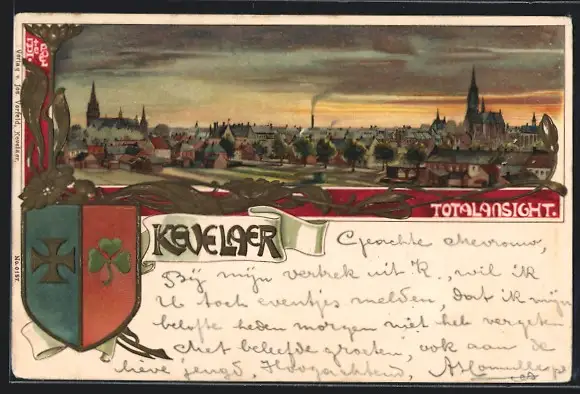 Verlag v. Jos. Verfeld, Kevelaer.
No. 0197
TOTALANSICHT.
KEVELAER
Geachte Mevrouw,
Bij mijn vertrek uit K., wil ik
U toch eventjes melden, dat ik mijn
belofte heden morgen niet heb vergeten
Met beleefde groeten, ook aan de
lieve jeugd, Hoogachtend,